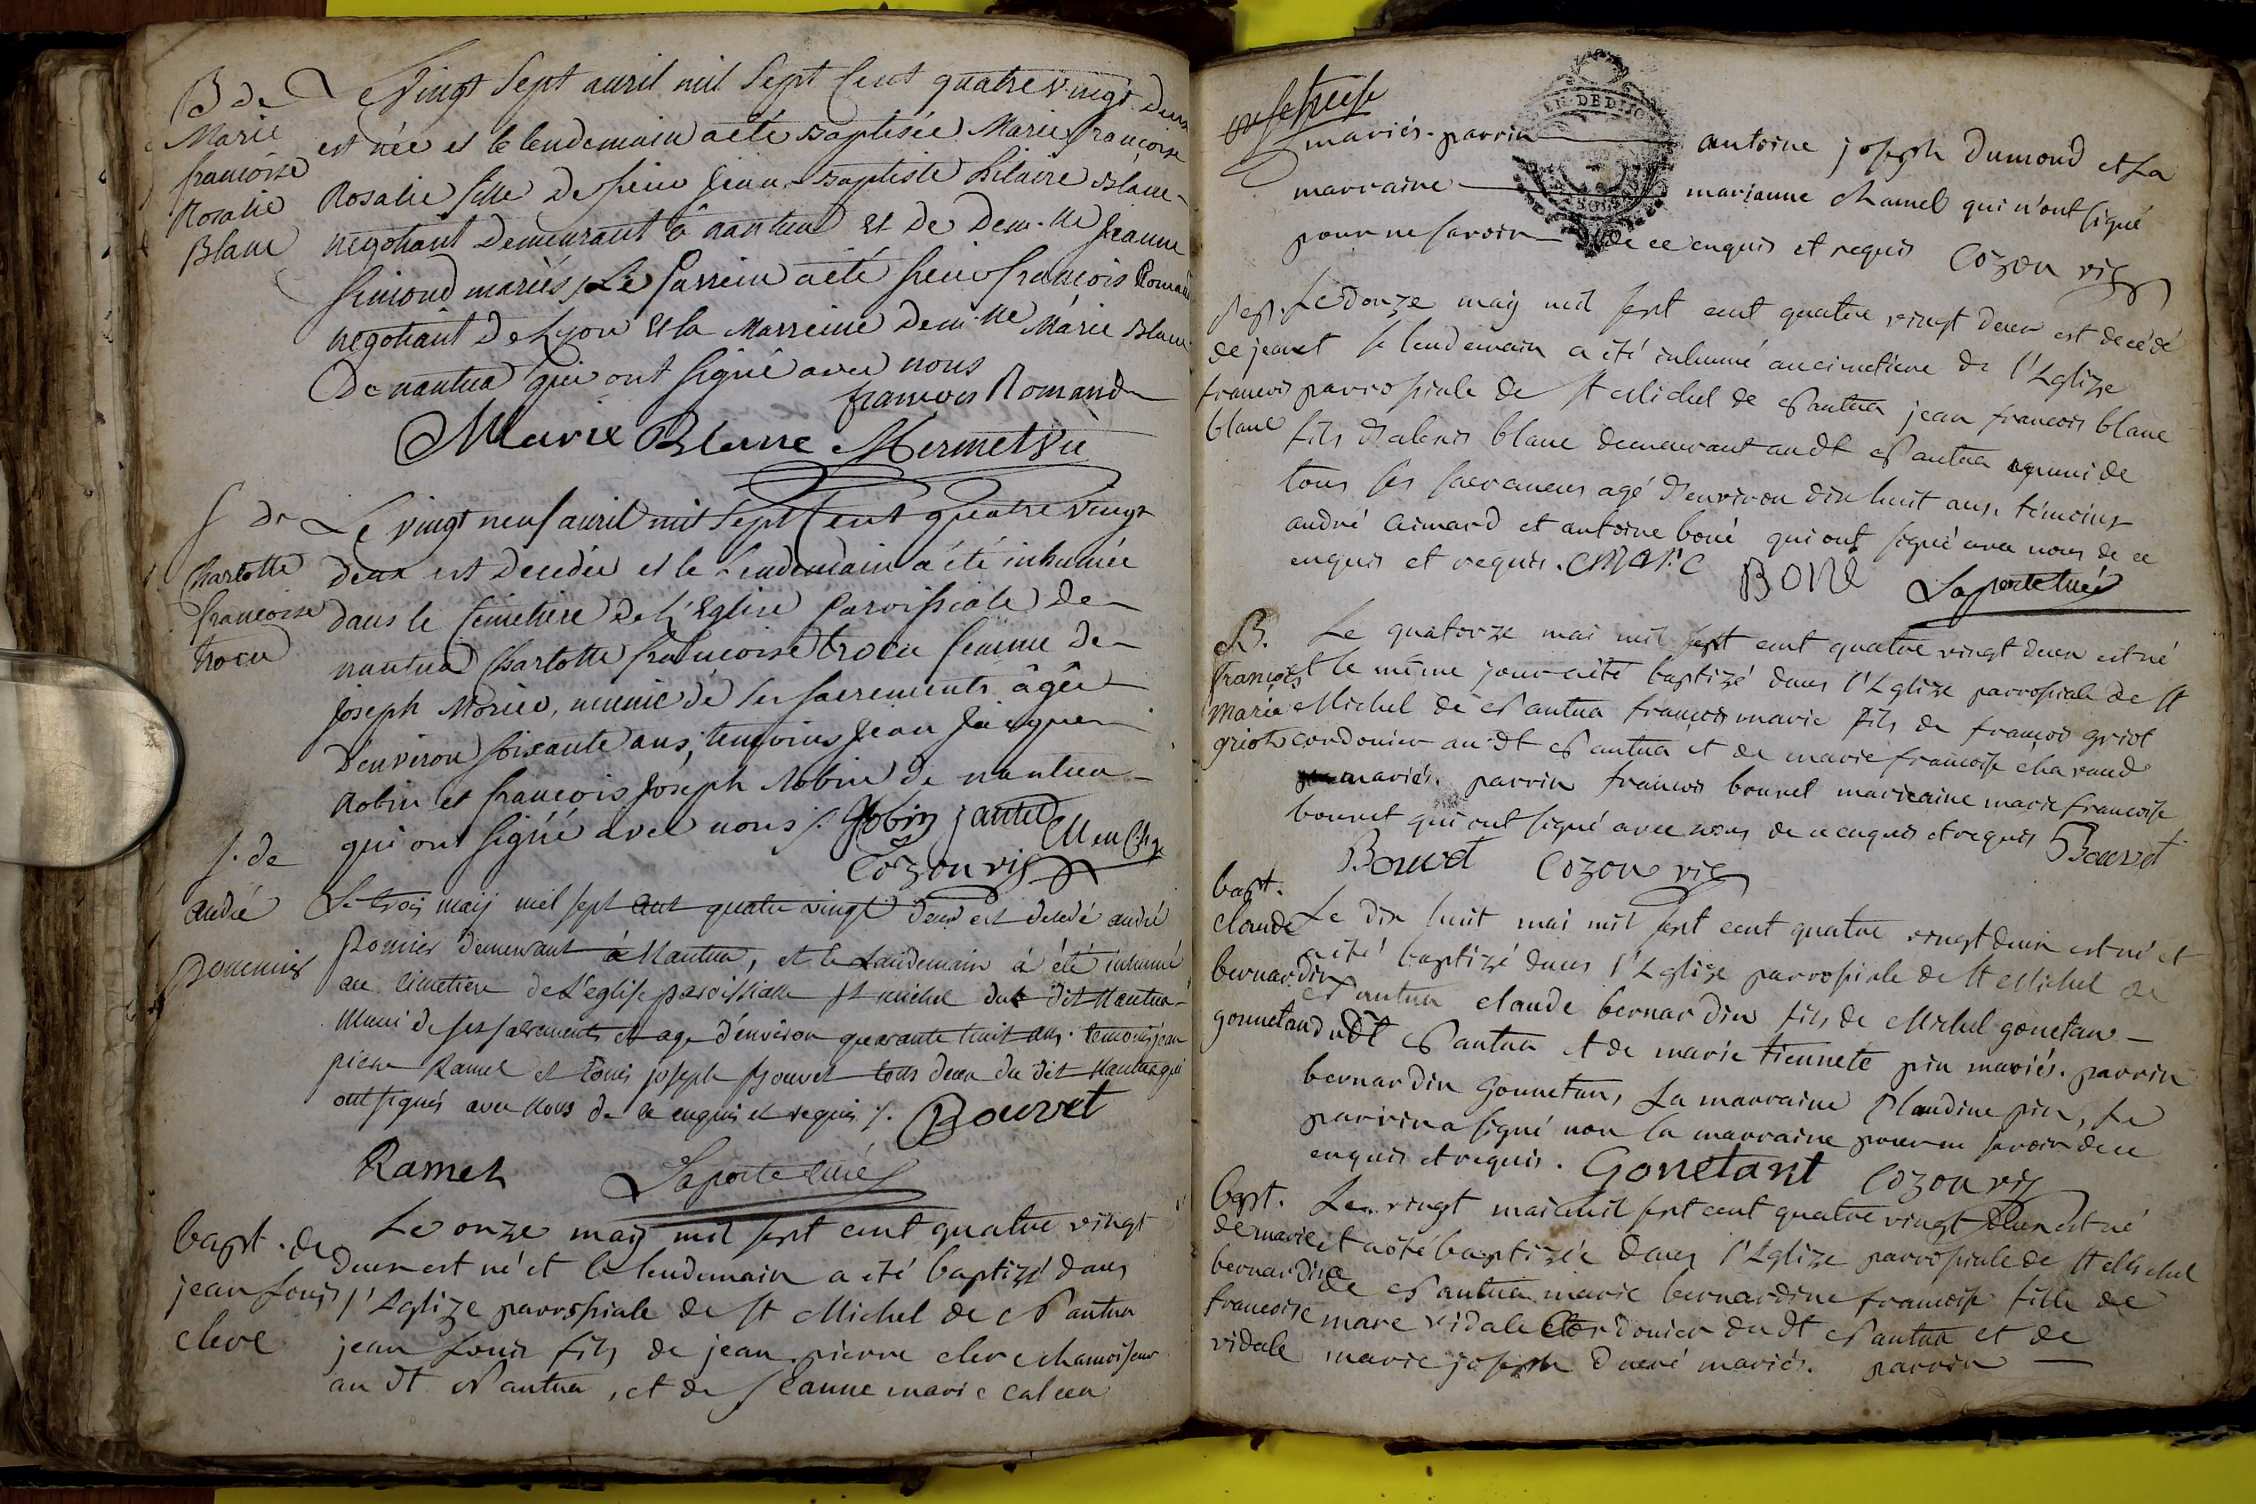 B de
Marie
francoise
Rosalie
Blanc
Le Vingt Sept avril mil Sept Cent quatre vingt Deux
est née et le lendemain a été Baptisée Marie francoise
Rosalie fille de sieur Jean-Baptiste hilaire Blanc
negotiant Demeurant à nantua Et de Dem.lle Jeanne
mariés, Le Parrein a été sieur francois Romand
negotiant De Lyon Et la Marreine dem.lle Marie Blanc
De nantua qui ont signé avec nous
francois Romand
Marie Blanc Mermet vic
S de
Charlotte
francoise
trocu
Le vingt neuf avril mil Sept Cent quatre Vingt
deux est Decedée et le lendemain a été inhumée
dans le Cimetiere de L'Eglise Paroissiale De
nantua Charlotte francoise trocu femme de
Joseph munie de ses sacrements âgée
D'environ soixante ans, temoins Jean Jacques
Robin et francois Joseph Robin de nantua
qui ont signé avec nous /. Robin
Cozon vic
S. de
André
Le trois maij mil sept cent quatre vingt deux est decedé andré
demeurant à Nantua, et le landemain à été inhumé
au cimetiere de L'eglise paroissialle st michel du dit Nantua
Muni de ses sacrements et age d'environ quarante huit ans. temoins jean
pierre Ramel et Louis joseph Bouvet tous deux du dit Nantua qui
ont signés avec Nous de ce enquis et requis /. Bouvet
Ramel Laporte curé
bapt. de
jean Louis
clerc
Le onze maij mil sept cent quatre vingt
deux est né et le lendemain a été baptizé dans
l'Eglize parrossiale de St Michel de Nantua
jean Louis fils de jean pierre clerc chamoiseur
au dt Nantua, et de Jeanne marie
mariés. parrin antoine joseph Dumond et La
marraine marianne chamel qui n'ont signé
pour ne savoir de ce enquis et requis Cozon vic
Sep.
de jean
francois
blanc
Le Douze maij mil sept cent quatre vingt deux est decédé
et le lendemain a été inhumé au cimetiere de l'Eglize
parrossiale de St Michel de Nantua jean francois blanc
fils d'alexis blanc demeurant au dt Nantua muni de
tous ses sacremens agé d'environ dix huit ans. témoins
andré aimard et antoine boné qui ont signé avec nous de ce
enquis et requis. BONé Laporte curé
B.
François
Marie
griot
Le quatorze mai mil sept cent quatre vingt deux est né
et le même jour a été baptizé dans l'Eglize parrossiale de St
Michel de Nantua françois marie fils de françois griot
cordonier au dt Nantua et de marie francoise
mariés. parrin francois bouvet marraine marie francoise
bouvet qui ont signé avec nous de ce enquis et requis Bouvet
Bouvet Cozon vic
bapt.
claude
bernardin
gonnetan
Le dix huit mai mil sept cent quatre vingt deux est né et
a été baptizé dans l'Eglize parrossiale de St Michel de
Nantua claude bernardin fils de Michel gonetan
du dt Nantua et de marie tiennete pin mariés. parrin
bernardin gonnetan, La marraine Claudine pin, Le
parrin a signé non la marraine pour ne savoir de ce
enquis et requis. Gonetant Cozon vic
bapt.
de marie
bernardine
francoise
vidale
Le vingt mai mil sept cent quatre vingt deux est né
et a été baptizée dans l'Eglize parrossiale de St Michel
de Nantua marie bernardine francoise fille de
marc vidale Cordonier du dt Nantua et de
marie joseph mariés. parrin